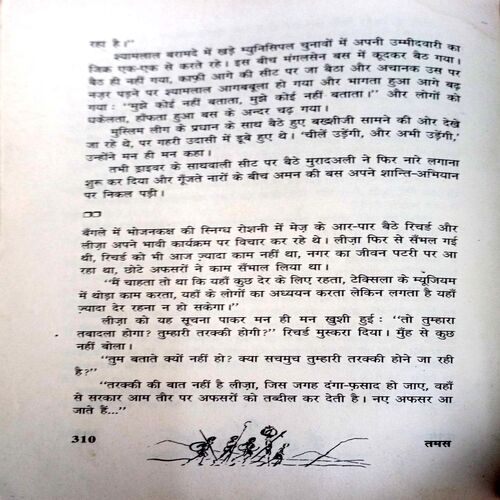 रहा है।"
श्यामलाल बरामदे में खड़े म्युनिसिपल चुनावों में अपनी उम्मीदवारी का
जिक्र एक-एक से करते रहे। इस बीच मंगलसेन बस में कूदकर बैठ गया।
बैठ ही नहीं गया, काफ़ी आगे की सीट पर जा बैठा और अचानक उस पर
नज़र पड़ने पर श्यामलाल आगबबूला हो गया और भागता हुआ आगे बढ़
गया : "मुझे कोई नहीं बताता, मुझे कोई नहीं बताता।" और लोगों को
धकेलता, हाँफता हुआ बस के अन्दर चढ़ गया।
मुस्लिम लीग के प्रधान के साथ बैठे हुए बख्शीजी सामने की ओर देखे
जा रहे थे, पर गहरी उदासी में डूबे हुए थे। 'चीलें उड़ेंगी, और अभी उड़ेंगी,'
उन्होंने मन ही मन कहा।
तभी ड्राइवर के साथवाली सीट पर बैठे मुरादअली ने फिर नारे लगाना
शुरू कर दिया और गूँजते नारों के बीच अमन की बस अपने शान्ति-अभियान
पर निकल पड़ी।
बँगले में भोजनकक्ष की स्निग्ध रोशनी में मेज़ के आर-पार बैठे रिचर्ड और
लीज़ा अपने भावी कार्यक्रम पर विचार कर रहे थे। लीज़ा फिर से सँभल गई
थी, रिचर्ड को भी आज ज़्यादा काम नहीं था, नगर का जीवन पटरी पर आ
रहा था, छोटे अफसरों ने काम सँभाल लिया था।
"मैं चाहता तो था कि यहाँ कुछ देर के लिए रहता, टेक्सिला के म्यूजियम
में थोड़ा काम करता, यहाँ के लोगों का अध्ययन करता लेकिन लगता है यहाँ
ज़्यादा देर रहना न हो सकेगा।"
लीज़ा को यह सूचना पाकर मन ही मन खुशी हुई : "तो तुम्हारा
तबादला होगा? तुम्हारी तरक्की होगी?" रिचर्ड मुस्करा दिया। मुँह से कुछ
नहीं बोला।
"तुम बताते क्यों नहीं हो? क्या सचमुच तुम्हारी तरक्की होने जा रही
है?"
"तरक्की की बात नहीं है लीज़ा, जिस जगह दंगा-फ़साद हो जाए, वहाँ
से सरकार आम तौर पर अफसरों को तब्दील कर देती है। नए अफसर आ
जाते हैं..."
310
तमस